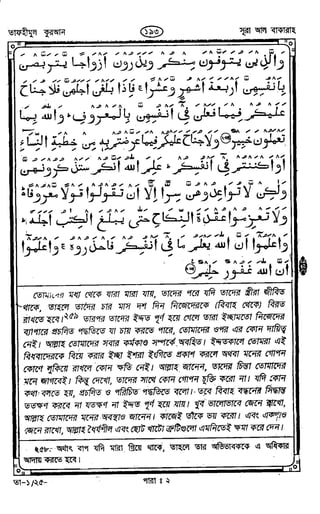 তাফহীমুল কুরআন
১৯৩
সূরা আল বাকারাহ
وَالَّذِينَ يُتَوَفَّوْنَ مِنْكُمْ وَيَذَرُونَ أَزْوَاجًا يَتَرَبَّصْنَ
بِأَنْفُسِهِنَّ أَرْبَعَةَ أَشْهُرٍ وَعَشْرًا ۚ فَإِذَا بَلَغْنَ أَجَلَهُنَّ فَلَا جُنَاحَ
عَلَيْكُمْ فِيمَا فَعَلْنَ فِي أَنْفُسِهِنَّ بِالْمَعْرُوفِ ۗ وَاللَّهُ بِمَا
تَعْمَلُونَ خَبِيرٌ ۝ وَلَا جُنَاحَ عَلَيْكُمْ فِيمَا عَرَّضْتُمْ بِهِ مِنْ خِطْبَةِ النِّسَاءِ
أَوْ أَكْنَنْتُمْ فِي أَنْفُسِكُمْ ۚ عَلِمَ اللَّهُ أَنَّكُمْ سَتَذْكُرُونَهُنَّ
وَلَٰكِنْ لَا تُوَاعِدُوهُنَّ سِرًّا إِلَّا أَنْ تَقُولُوا قَوْلًا مَعْرُوفًا ۚ
وَلَا تَعْزِمُوا عُقْدَةَ النِّكَاحِ حَتَّىٰ يَبْلُغَ الْكِتَابُ أَجَلَهُ ۚ
وَاعْلَمُوا أَنَّ اللَّهَ يَعْلَمُ مَا فِي أَنْفُسِكُمْ فَاحْذَرُوهُ ۚ وَاعْلَمُوا
أَنَّ اللَّهَ غَفُورٌ حَلِيمٌ ۝
তোমাদের মধ্য থেকে যারা মারা যায়, তাদের পরে যদি তাদের স্ত্রীরা জীবিত
থাকে, তাহলে তাদের চার মাস দশ দিন নিজেদেরকে (বিবাহ থেকে) বিরত
রাখতে হবে।২৫৯ তারপর তাদের ইদ্দত পূর্ণ হয়ে গেলে তারা ইচ্ছামতো নিজেদের
ব্যাপারে প্রচলিত পদ্ধতিতে যা চায় করতে পারে, তোমাদের ওপর এর কোন দায়িত্ব
নেই। আল্লাহ তোমাদের সবার কর্মকাণ্ড সম্পর্কে অবহিত। ইদ্দতকালে তোমরা এই
বিধবাদেরকে বিয়ে করার ইচ্ছা ইশারা ইংগিতে প্রকাশ করলে অথবা মনের গোপন
কোণে লুকিয়ে রাখলে কোন ক্ষতি নেই। আল্লাহ জানেন, তাদের চিন্তা তোমাদের
মনে জাগবেই। কিন্তু দেখো, তাদের সাথে কোন গোপন চুক্তি করো না। যদি কোন
কথা বলতে হয়, প্রচলিত ও পরিচিত পদ্ধতিতে বলো। তবে বিবাহ বন্ধনের সিদ্ধান্ত
ততক্ষণ করবে না যতক্ষণ না ইদ্দত পূর্ণ হয়ে যায়। খুব ভালোভাবে জেনে রাখো,
আল্লাহ তোমাদের মনের অবস্থাও জানেন। কাজেই তাঁকে ভয় করো। এবং একথাও
জেনে রাখো, আল্লাহ ধৈর্যশীল এবং ছোট খাটো ত্রুটিগুলো এমনিতেই ক্ষমা করে দেন।
২৫৮. অর্থাৎ বাপ যদি মারা গিয়ে থাকে, তাহলে তার অভিভাবককে এ অধিকার
আদায় করতে হবে।
তা-১/২৫-
পারা : ২